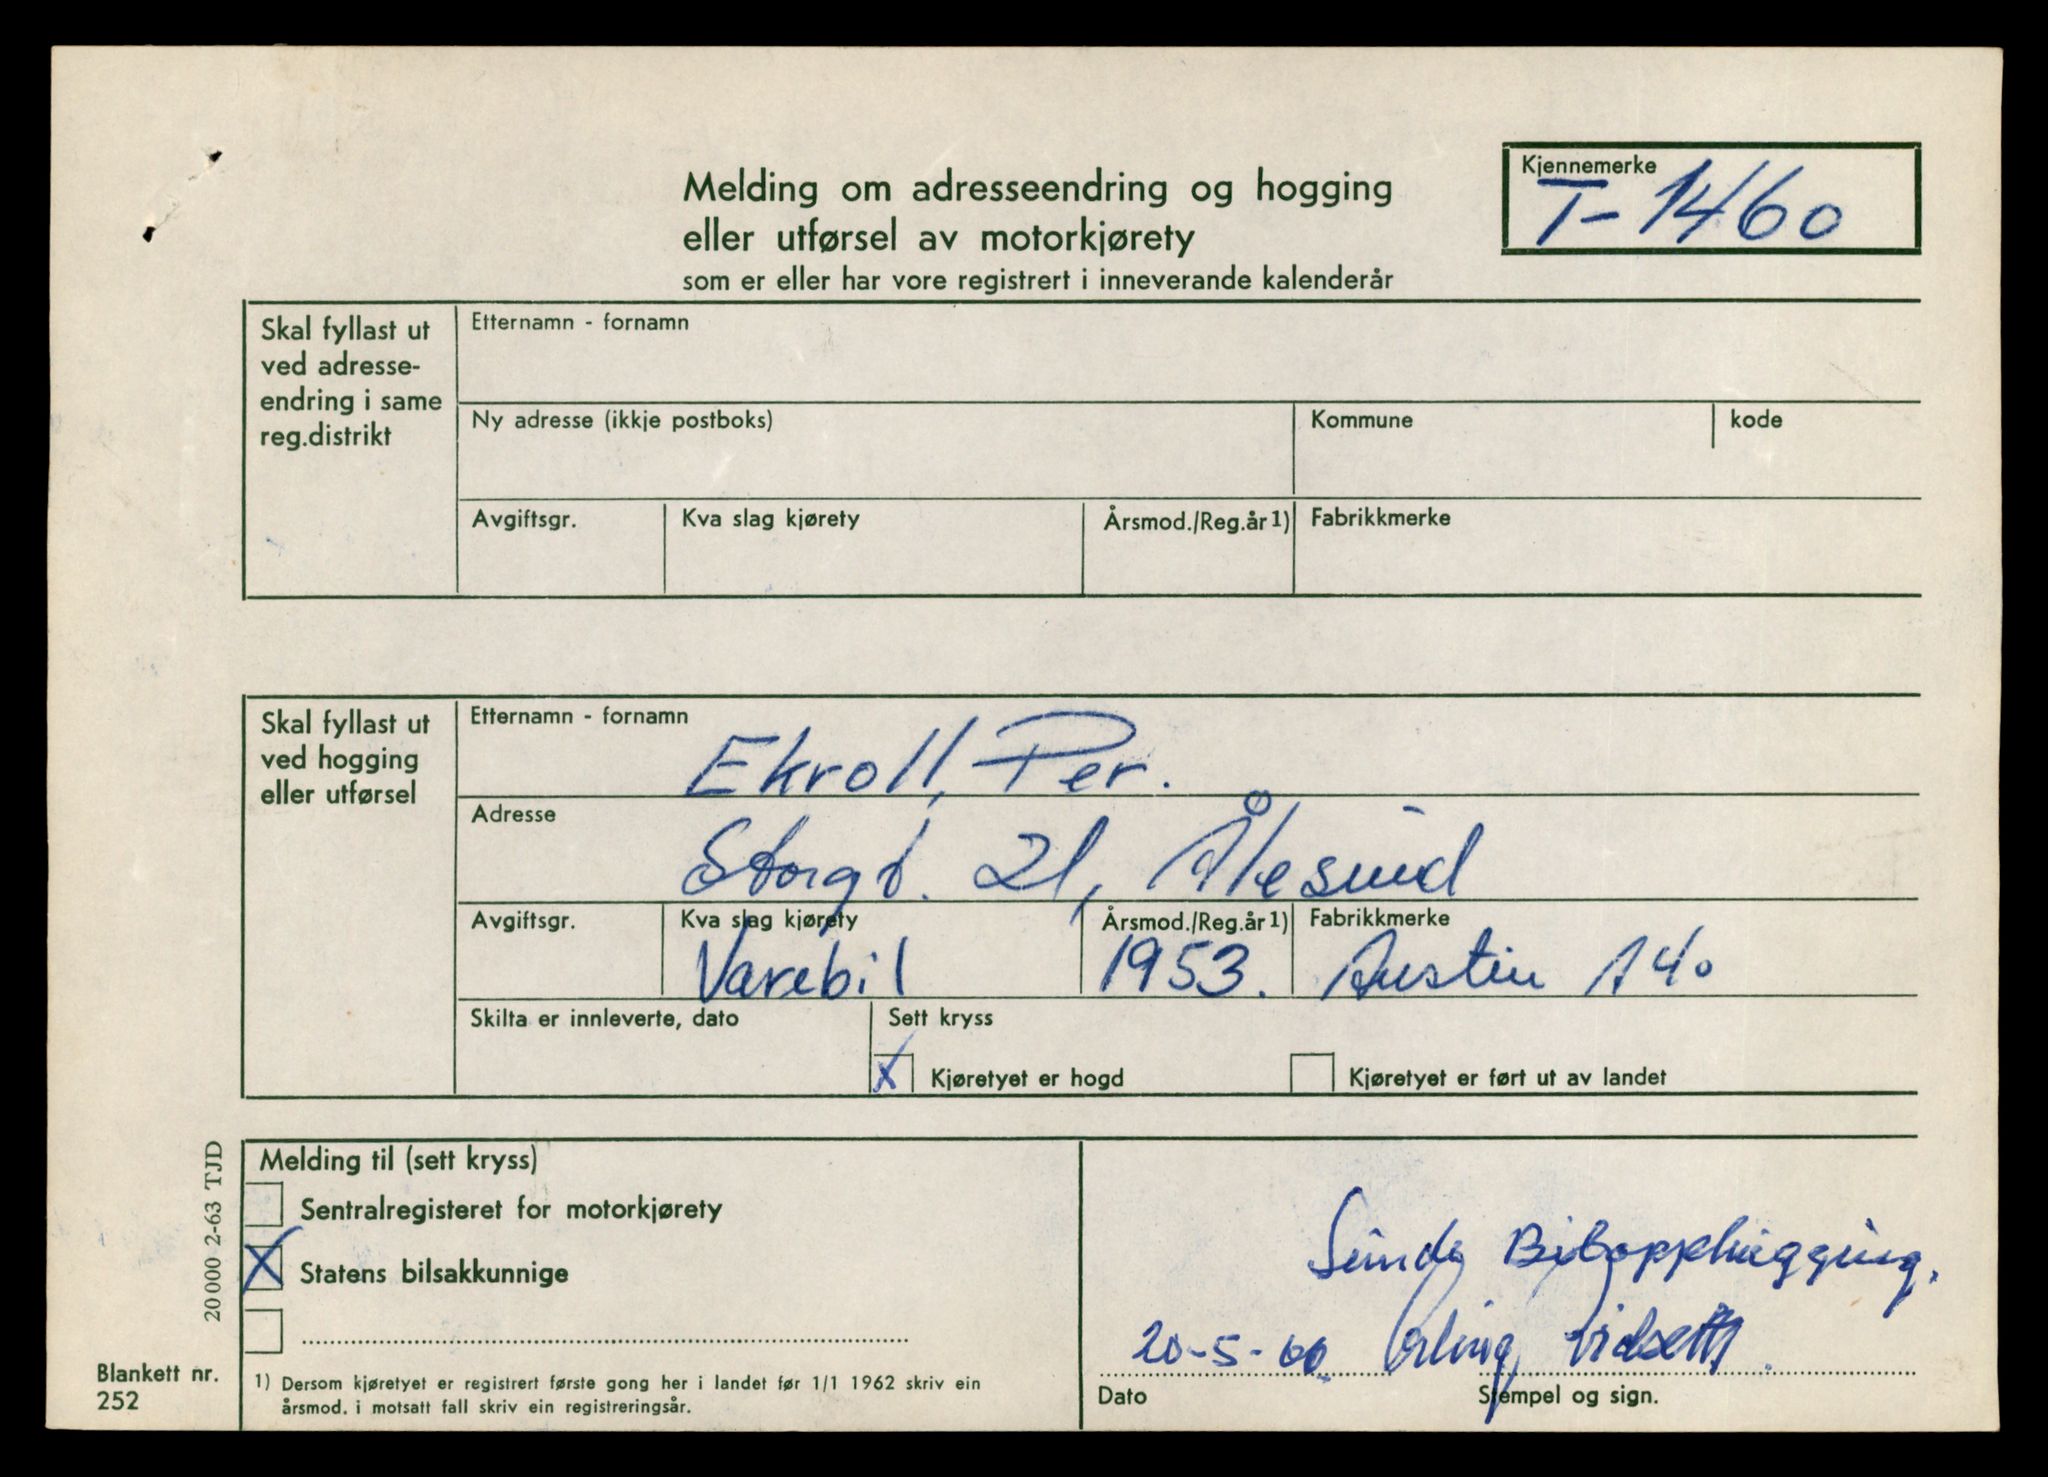 Kjennemerke
T-1460
Melding om adresseendring og hogging
eller utførsel av motorkjørety
som er eller har vore registrert i inneverande kalenderår
Skal fyllast ut
ved adresse-
endring i same
reg.distrikt
Etternamn - fornamn
Ny adresse (ikkje postboks)
Kommune
kode
Avgiftsgr.
Kva slag kjørety
Årsmod./Reg.år 1)
Fabrikkmerke
Skal fyllast ut
ved hogging
eller utførsel
Etternamn - fornamn
Ekroll, Per.
Adresse
Storgt. 21, Ålesund
Avgiftsgr.
Kva slag kjørety
Varebil
Årsmod./Reg.år 1)
1953.
Fabrikkmerke
Austin A 40
Skilta er innleverte, dato
Sett kryss
X Kjøretyet er hogd
Kjøretyet er ført ut av landet
Melding til (sett kryss)
Sentralregisteret for motorkjørety
X Statens bilsakkunnige
20 000 2-63 TJD
Blankett nr.
252
1) Dersom kjøretyet er registrert første gong her i landet før 1/1 1962 skriv ein
årsmod. i motsatt fall skriv ein registreringsår.
Bilopphugging.
20-5-
Erling
Dato
Stempel og sign.